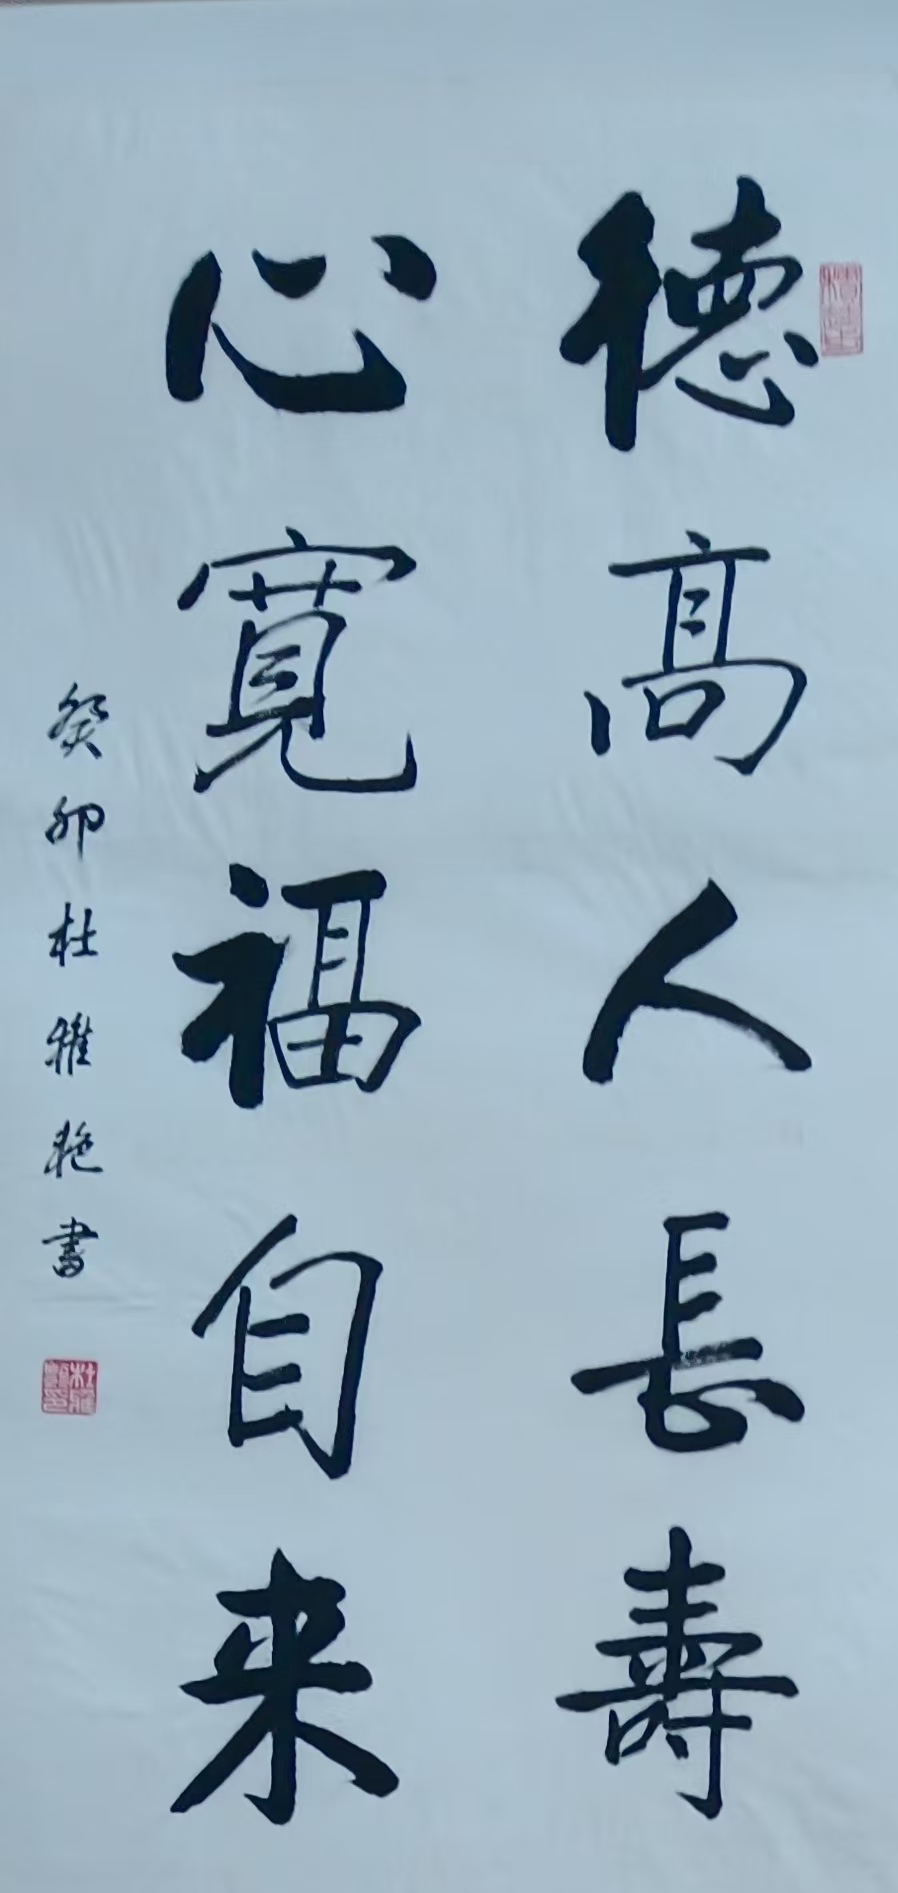 德高人長壽
心寬福自来
癸卯杜雅艳書